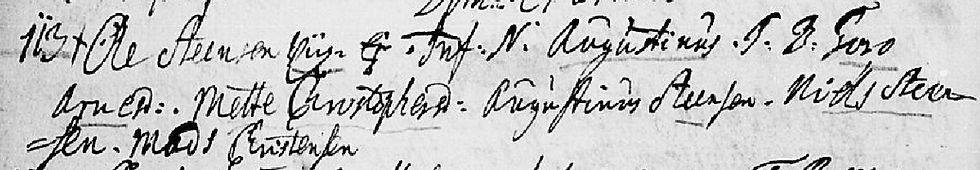 113 + Ole Steensen Inf. N. Augustinus. T. B. Goro
Arnesd: Mette Christophersd: Augustinus Steensen. Niels Steen
=sen. Mads Christensen